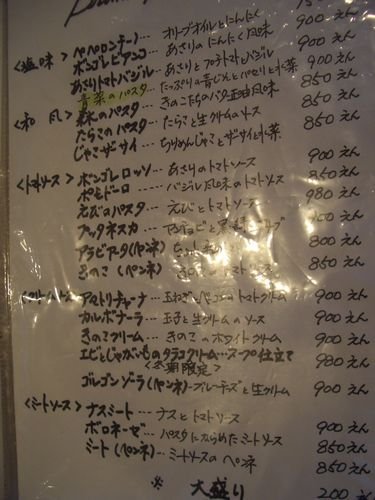 <塩味> ペペロンチーノ … オリーブオイルとにんにく 900えん
ボンゴレビアンコ … あさりのにんにく風味 900えん
あさりトマトバジル … あさりとプチトマトバジル 900えん
青菜のパスタ … たっぷりの青じそとパセリと水菜 850えん
<和風> 森のパスタ … きのこたちのバター醤油風味 850えん
たらこのパスタ … たらこと生クリームのソース 850えん
じゃこザーサイ … ちりめんじゃことザーサイと水菜
<トマトソース> ボンゴレロッソ … あさりのトマトソース 900えん
ポモドーロ … バジル風味のトマトソース 850えん
えびのパスタ … えびとトマトソース 980えん
プッタネスカ … アンチョビと黒 900えん
アラビアータ(ペンネ) 800えん
きのこ(ペンネ) トマト 850えん
<クリームソース> アマトリチャーナ … 玉ねぎ ベーコンのトマトクリーム 900えん
カルボナーラ … 玉子と生クリームのソース 900えん
きのこクリーム … きのこのホワイトクリーム 900えん
エビとじゃがいものタラコクリーム … スープ仕立て 980えん
<冬期限定>
ゴルゴンゾーラ(ペンネ) … ブルーチーズと生クリーム 900えん
<ミートソース> ナスミート … ナスとトマトソース 900えん
ボロネーゼ … パスタにからめたミートソース 850えん
ミート(ペンネ) … ミートソースのペンネ 850えん
※ 大盛り 200えん